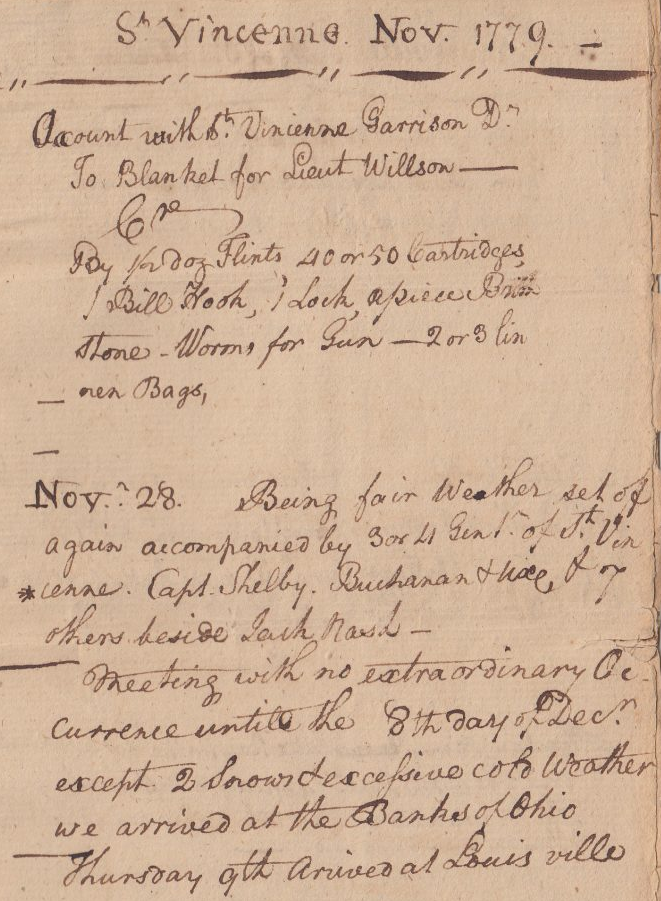 St. Vincenne. Nov. 1779. —
Account with St. Vincenne Garrison Dr
To Blanket for Lieut Willson —
Cre
By 1/2 doz Flints 40 or 50 Cartridges,
1 Bill Hook, 1 Lock, apiece Brim
stone - Worms for Gun — 2 or 3 lin
— nen Bags,
—
Nov.r 28. Being fair Weather set of
again accompanied by 3 or 4 Gent.n of St. Vin
*cenne. Capt. Shelby. Buchanan & & 7
others beside Jack Nash —
Meeting with no extraordinary Oc-
currence untill the 8th day of Decr.
except 2 Snows & excessive cold Weather
we arrived at the Banks of Ohio
Thursday 9th Arived at Louis ville